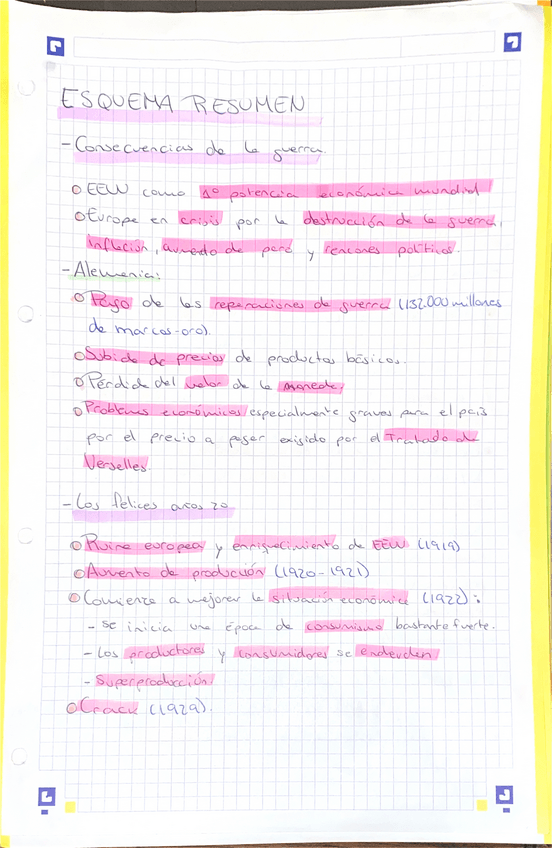 ESQUEMA RESUMEN
- Consecuencias de la guerra.
EEUU como 1º potencia económica mundial
Europa en crisis por la destrucción de la guerra,
inflación, aumento de paro y rencores políticos.
- Alemania:
Pago de las reparaciones de guerra (132.000 millones
de marcos-oro).
Subida de precios de productos básicos.
Pérdida del valor de la moneda
Problemas económicos especialmente graves para el país
por el precio a pagar exigido por el Tratado de
Verselles.
- Los felices años 20
Ruina europea y enriquecimiento de EEUU (1919)
Aumento de producción (1920-1921)
Comienza a mejorar la situación económica (1922):
- Se inicia una época de consumismo bastante fuerte.
- Los productores y consumidores se endeudan
- Superproducción
Crack (1929).